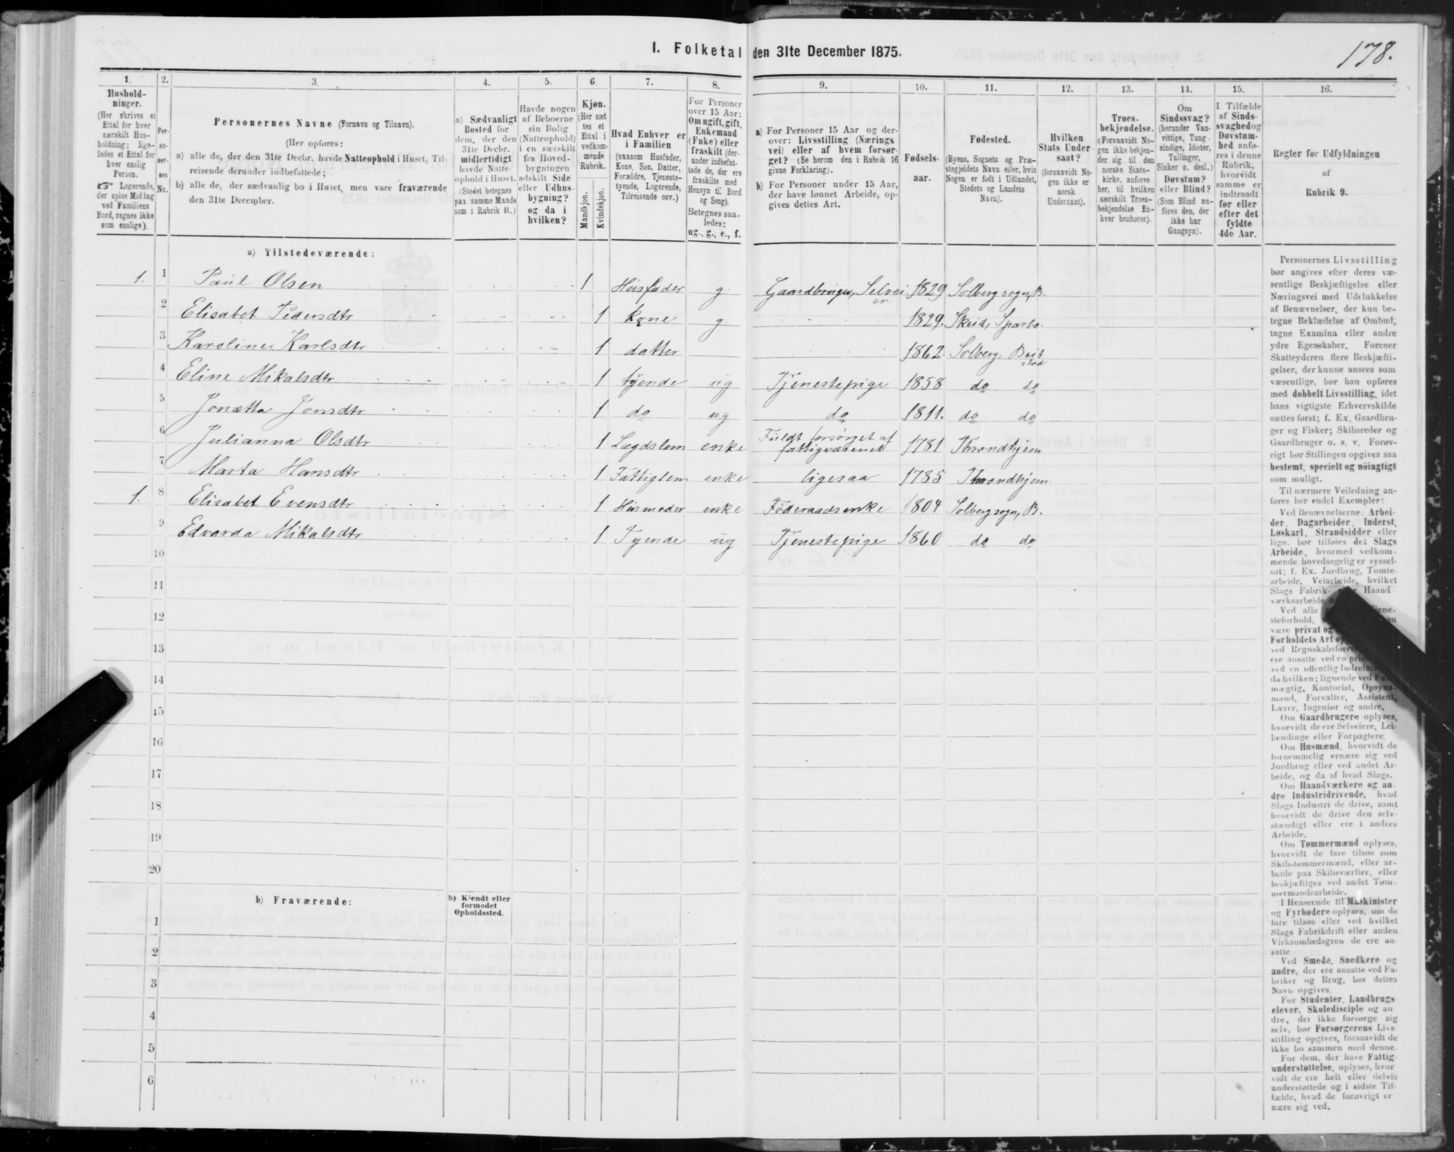 I. Folketal den 31te December 1875.
178.
1.
2.
3.
4.
5.
6.
7.
8.
9.
10.
11.
12.
13.
14.
15.
16.
Husholdninger.
(Her skrives et
Ettal for hver
særskilt Husholdning; ligeledes et Ettal for
hver enslig
Person.
☞ Logerende,
der spise Middag
ved Familiens
Bord, regnes ikke
som enslige).
Personernes No.
Personernes Navne (Fornavn og Tilnavn).
(Her opføres:
a) alle de, der den 31te Decbr. havde Natteophold i Huset, Tilreisende derunder indbefattede;
b) alle de, der sædvanlig bo i Huset, men vare fraværende
den 31te December.
a) Sædvanligt
Bosted for
dem, der den
31te Decbr.
midlertidigt
havde Natteophold i Huset.
(Stedet betegnes
paa samme Maade
som i Rubrik 11.)
Havde nogen
af Beboerne
sin Bolig
(Natteophold)
i en særskilt
fra Hovedbygningen
adskilt Side
eller Udhusbygning?
og da i
hvilken?
Kjøn.
(Her sættes et
Ettal i
vedkommende
Rubrik.
Mandkjøn.
Kvindekjøn.
Hvad Enhver er
i Familien
(saasom Husfader,
Kone, Søn, Datter,
Forældre, Tjenestetyende, Logerende,
Tilreisende osv.)
For Personer
over 15 Aar:
Om ugift, gift,
Enkemand
(Enke) eller
fraskilt (derunder indbefattede de, der ere
fraskilte med
Hensyn til Bord
og Seng).
Betegnes saaledes:
ug., g., e., f.
a) For Personer 15 Aar og derover: Livsstilling (Næringsvei) eller af hvem forsørget? (Se herom den i Rubrik 16
givne Forklaring).
b) For Personer under 15 Aar,
der have lønnet Arbeide, opgives dettes Art.
Fødselsaar.
Fødested.
(Byens, Sognets og Præstegjeldets Navn eller, hvis
Nogen er født i Udlandet,
Stedets og Landets
Navn).
Hvilken
Stats Undersaat?
(forsaavidt Nogen ikke er
norsk
Undersaat).
Troesbekjendelse.
(Forsaavidt Nogen ikke bekjender sig til den
norske Statskirke, anføres
her, til hvilken
særskilt Troesbekjendelse Enhver henhører).
Om
Sindssvag?
(herunder Vanvittige, Tungsindige, Idioter,
Tullinger,
Sinker o. desl.)
Døvstum?
eller Blind?
(Som Blind anføres den, der
ikke har
Gangsyn).
I Tilfælde
af Sindssvaghed og
Døvstumhed anføres i denne
Rubrik,
hvorvidt
samme er
indtraadt
før eller
efter det
fyldte
4de Aar.
Regler for Udfyldningen
af
Rubrik 9.
a) Tilstedeværende:
1. 1 Paul Olsen 1 Husfader g Gaardbruger, Selveier 1829 Solberg sogn, B.
2 Elisabet Pedersdtr 1 kone g 1829.
3 Karoline Karlsdtr 1 datter 1862. Solberg. Beitstad
4 Eline Mikalsdtr 1 tyende ug Tjenestepige 1858 do do
5 Jonætta Jonsdtr 1 do ug do 1811. do do
6 Julianna Olsdtr 1 Lægdslem enke Fuldt forsørget af fattigvæsenet 1781 Throndhjem
7 Marta Hansdtr 1 Fattiglem enke ligesaa 1785 Throndhjem
1. 8 Elisabet Evensdtr 1 Husmoder enke Føderaadsenke 1804 Solberg sogn, B.
9 Edvarda Mikalsdtr 1 Tyende ug Tjenestepige 1860 do do
10
11
12
13
14
15
16
17
18
19
20
b) Fraværende:
b) Kjendt eller
formodet
Opholdssted.
1
2
3
4
5
6
Personernes Livsstilling
bør angives efter deres væsentlige Beskjæftigelse eller
Næringsvei med Udelukkelse
af Benævnelser, der kun betegne Beklædelse af Ombud,
tagne Examina eller andre
ydre Egenskaber. Forener
Skatteyderen flere Beskjæftigelser, der kunne ansees som
væsentlige, bør han opføres
med dobbelt Livsstilling, idet
hans vigtigste Erhvervskilde
sættes først; f. Ex. Gaardbruger og Fisker; Skibsreder og
Gaardbruger o. s. v. Forøvrigt bør Stillingen opgives saa
bestemt, specielt og nøiagtigt
som muligt.
Til nærmere Veiledning anføres her endel Exempler:
Ved Benævnelserne: Arbeider, Dagarbeider, Inderst,
Løskarl, Strandsidder eller
lign. bør tilføies det Slags
Arbeide, hvormed vedkommende hovedsagelig er sysselsat; f. Ex. Jordbrug, Tomtearbeide, Veiarbeide, hvilket
Slags Fabrik- Haandværksarbeide
Ved alle
steforhold,
være privat og
Forholdets Art
ved Regnskabsførere
ere ansatte ved en
ved en offentlig
da hvilken; lignende ved
mægtig, Kontorist,
mand, Forvalter, Assistent,
Lærer, Ingeniør og andre.
Om Gaardbrugere oplyses,
hvorvidt de ere Selveiere, Leilændinge eller Forpagtere.
Om Husmænd, hvorvidt de
fornemmelig ernære sig ved
Jordbrug eller ved andet Arbeide, og da af hvad Slags.
Om Haandværkere og andre Industridrivende, hvad
Slags Industri de drive, samt
hvorvidt de drive den selvstændigt eller ere i andres
Arbeide.
Om Tømmermænd oplyses,
hvorvidt de fare tilsøs som
Skibstømmermænd, eller arbeide paa Skibsværfter, eller
beskjæftiges ved andet Tømmermandsarbeide.
I Henseende til Maskinister
og Fyrbødere oplyses, om de
fare tilsøs eller ved hvilket
Slags Fabrikdrift eller anden
Virksomhedsgren de ere ansatte.
Ved Smede, Snedkere og
andre, der ere ansatte ved Fabriker og Brug, bør dettes
Navn opgives.
For Studenter, Landbrugselever, Skoledisciple og andre, der ikke forsørge sig
selv, bør Forsørgerens Livsstilling opgives, forsaavidt de
ikke bo sammen med denne.
For dem, der have Fattigunderstøttelse, oplyses, hvorvidt de ere helt eller delvis
understøttede og i sidste Tilfælde, hvad de forøvrigt ernære sig ved.